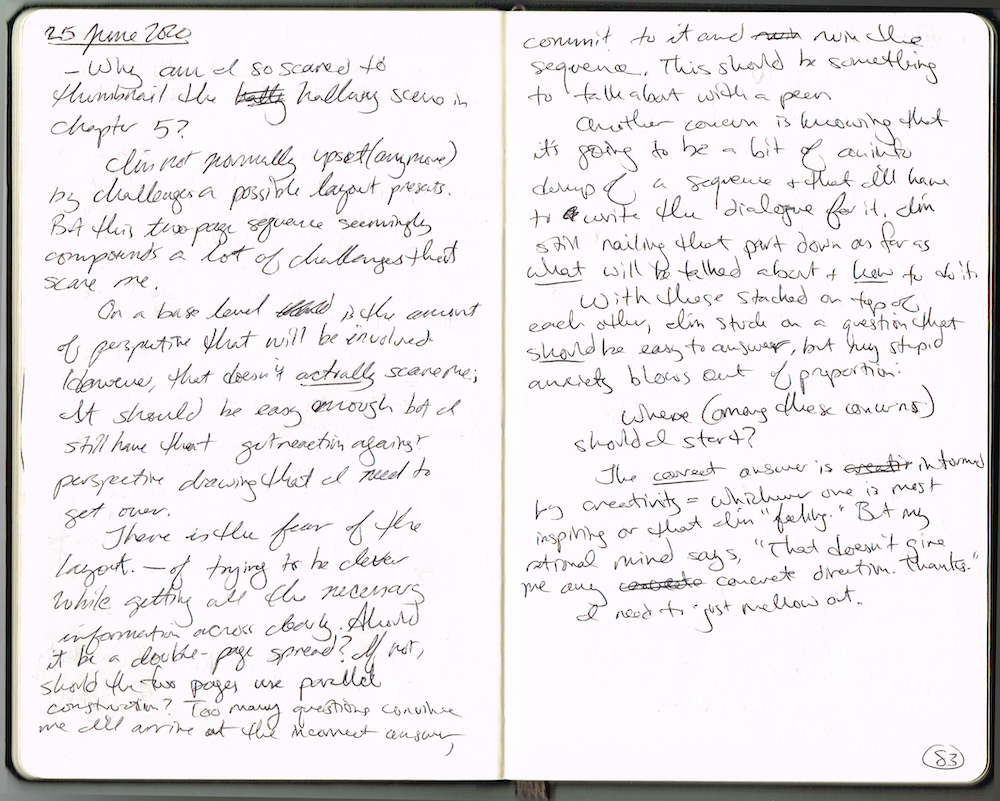 25 June 2020
– Why am I so scared to
thumbnail the hallway scene in
chapter 5?
I'm not normally upset (anymore)
by challenges a possible layout presents.
But this two-page sequence seemingly
compounds a lot of challenges that
scare me.
On a base level is the amount
of perspective that will be involved.
However, that doesn't actually scare me;
It should be easy enough but I
still have that gut reaction against
perspective drawing that I need to
get over.
There is the fear of the
layout. – of trying to be clever
while getting all the necessary
information across clearly. Should
it be a double-page spread? If not,
should the two pages use parallel
construction? Too many questions convince
me I'll arrive at the incorrect answer,
commit to it and ruin the
sequence. This should be something
to talk about with a peer.
Another concern is knowing that
it's going to be a bit of an info
dump of a sequence + that I'll have
to write the dialogue for it. I'm
still nailing that part down as far as
what will be talked about + how to do it.
With these stacked on top of
each other, I'm stuck on a question that
should be easy to answer, but my stupid
anxiety blows out of proportion:
Where (among these concerns)
should I start?
The correct answer is informed
by creativity = whichever one is most
inspiring or that I'm "feeling." But my
rational mind says, "That doesn't give
me any concrete direction. Thanks."
I need to just mellow out.
83